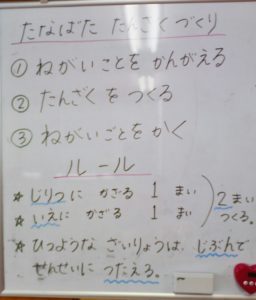 たなばた たんざくづくり
① ねがいことを かんがえる
② たんざくを つくる
③ ねがいごとを かく
ルール
★ じりつに かざる 1 まい
★ いえに かざる 1 まい
2まい
つくる。
★ ひつような ざいりょうは、じぶんで
せんせいに つたえる。